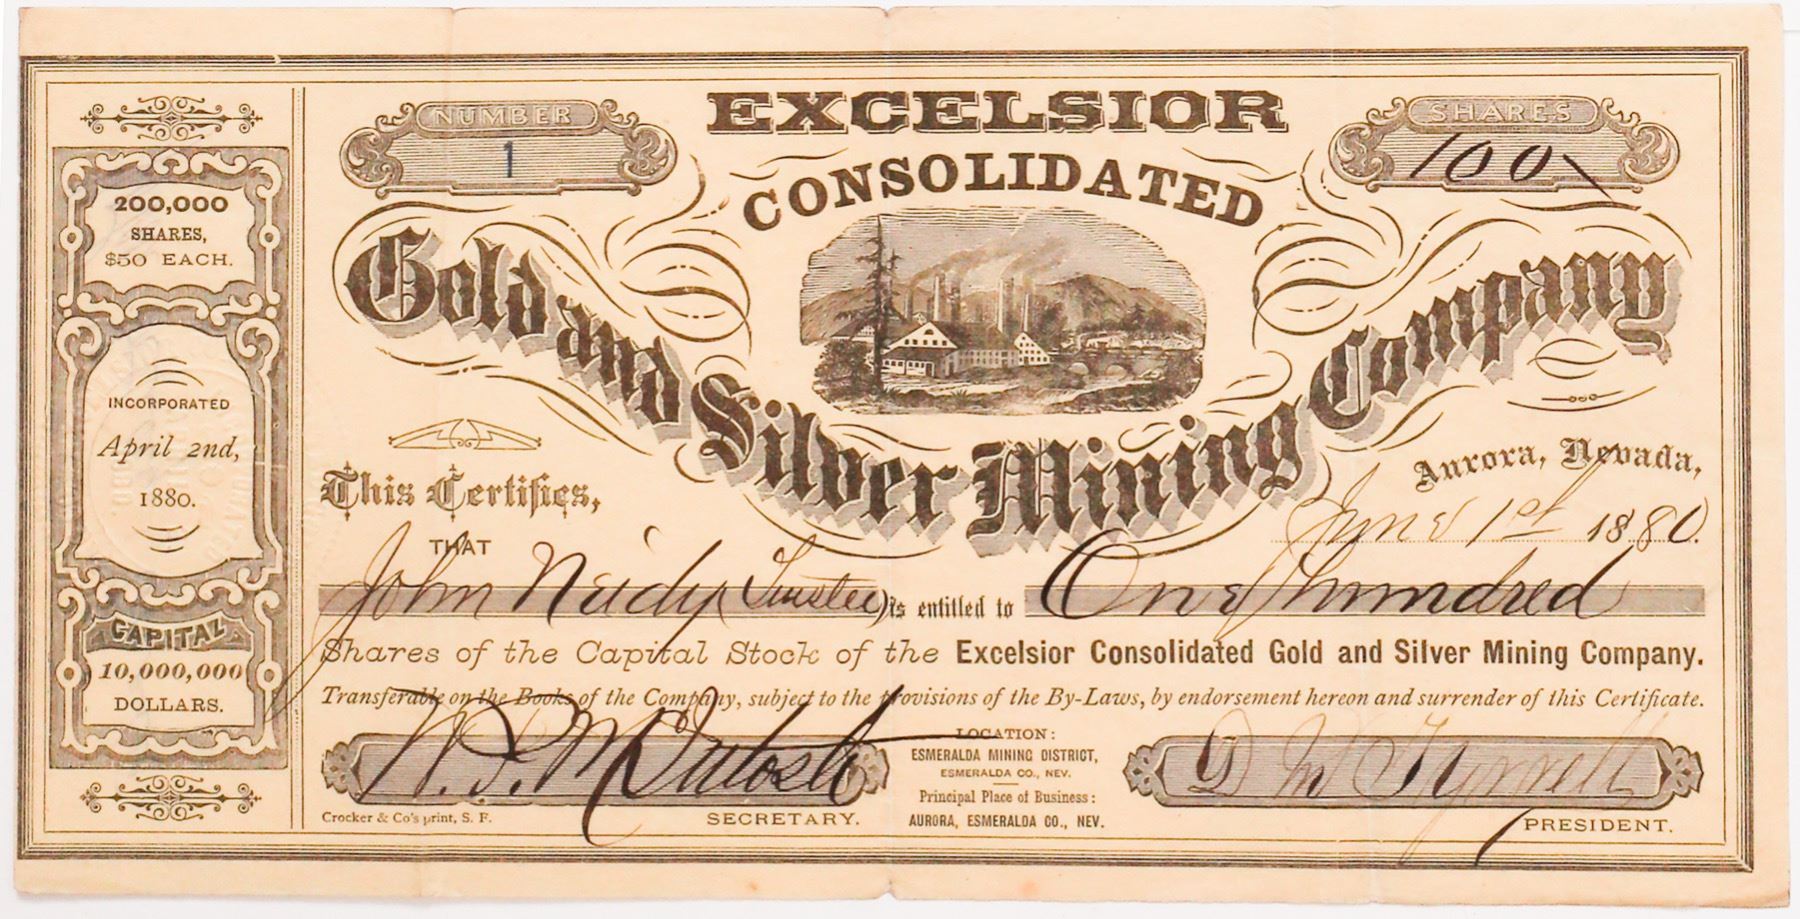 NUMBER
1
EXCELSIOR
SHARES
100
CONSOLIDATED
Gold and Silver Mining Company
200,000
SHARES,
$50 EACH.
INCORPORATED
April 2nd,
1880.
CAPITAL
10,000,000
DOLLARS.
Aurora, Nevada,
June 1st 1880.
This Certifies,
THAT
John Neidy (Trustee) is entitled to One Hundred
Shares of the Capital Stock of the Excelsior Consolidated Gold and Silver Mining Company.
Transferable on the Books of the Company, subject to the provisions of the By-Laws, by endorsement hereon and surrender of this Certificate.
LOCATION:
ESMERALDA MINING DISTRICT,
ESMERALDA CO., NEV.
Principal Place of Business:
AURORA, ESMERALDA CO., NEV.
Crocker & Co's print, S. F.
SECRETARY.
PRESIDENT.